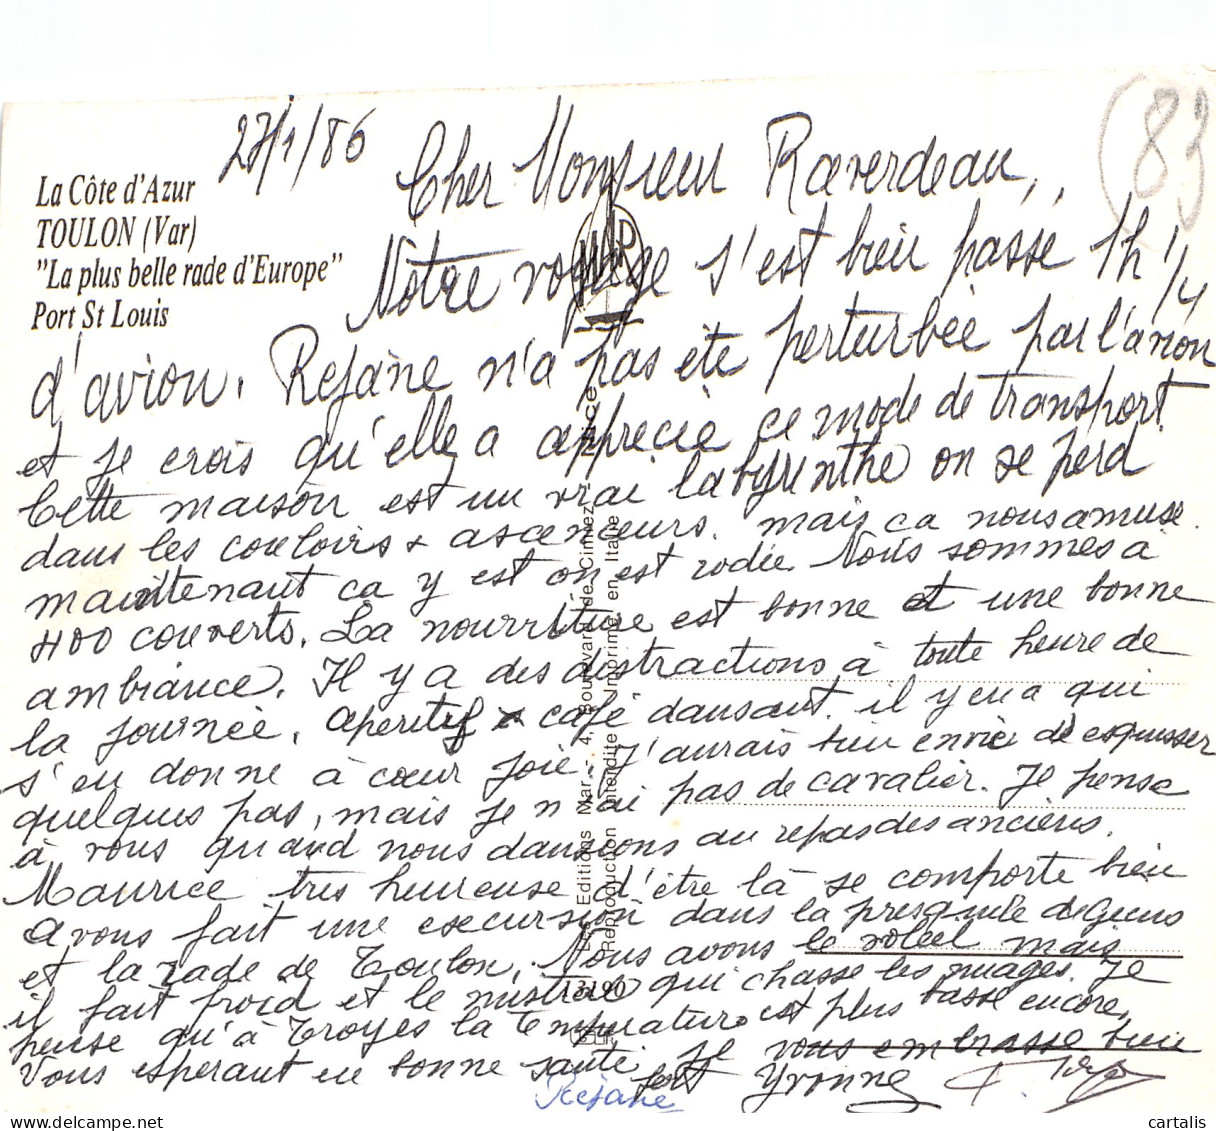 27/1/86
(83)
La Côte d'Azur
TOULON (Var)
"La plus belle rade d'Europe"
Port St Louis
Cher Monsieur Raverdeau,,
Nôtre voyage s'est bien passé 1h 1/4
d'avion. Rejane n'a pas été perturbée par l'avion
et je crois qu'elle a apprécié ce mode de transport
Cette maison est un vrai labyrinthe on se perd
dans les couloirs + ascenseurs. mais ca nous amuse.
maintenant ca y est on est rodée Nous sommes à
400 couverts. La nourriture est bonne et une bonne
ambiance. Il y a des distractions à toute heure de
la journée, aperitif café dansant. il y en a qui
s'en donne à cœur joie. J'aurais bien envie de esquisser
quelques pas, mais je n'ai pas de cavalier. Je pense
à vous quand nous dansions au repas des anciens.
Maurice très heureuse d'être là se comporte bien
avons fait une excursion dans la presqu'ile de Giens
et la rade de Toulon. Nous avons le soleil mais
il fait froid et le mistral qui chasse les nuages. Je
pense qu'à Troyes la température est plus basse encore,
Vous esperant en bonne santé je vous embrasse bien
fort Yvonne
Rejane
Les Editions Mar - 4, Boulevard de Cimiez - Nice
Reproduction interdite Imprimé en Italie
MAR
13190
cartalis